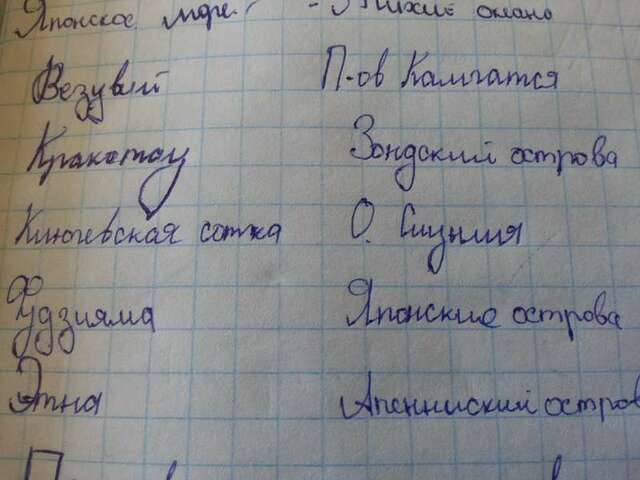 Японское море. - Тихий океано
Везувий П-ов Камчатся
Кракатау Зондский острова
Ключевская сотка О. Сицилия
Фудзияма Японские острова
Этна Апеннинский остров